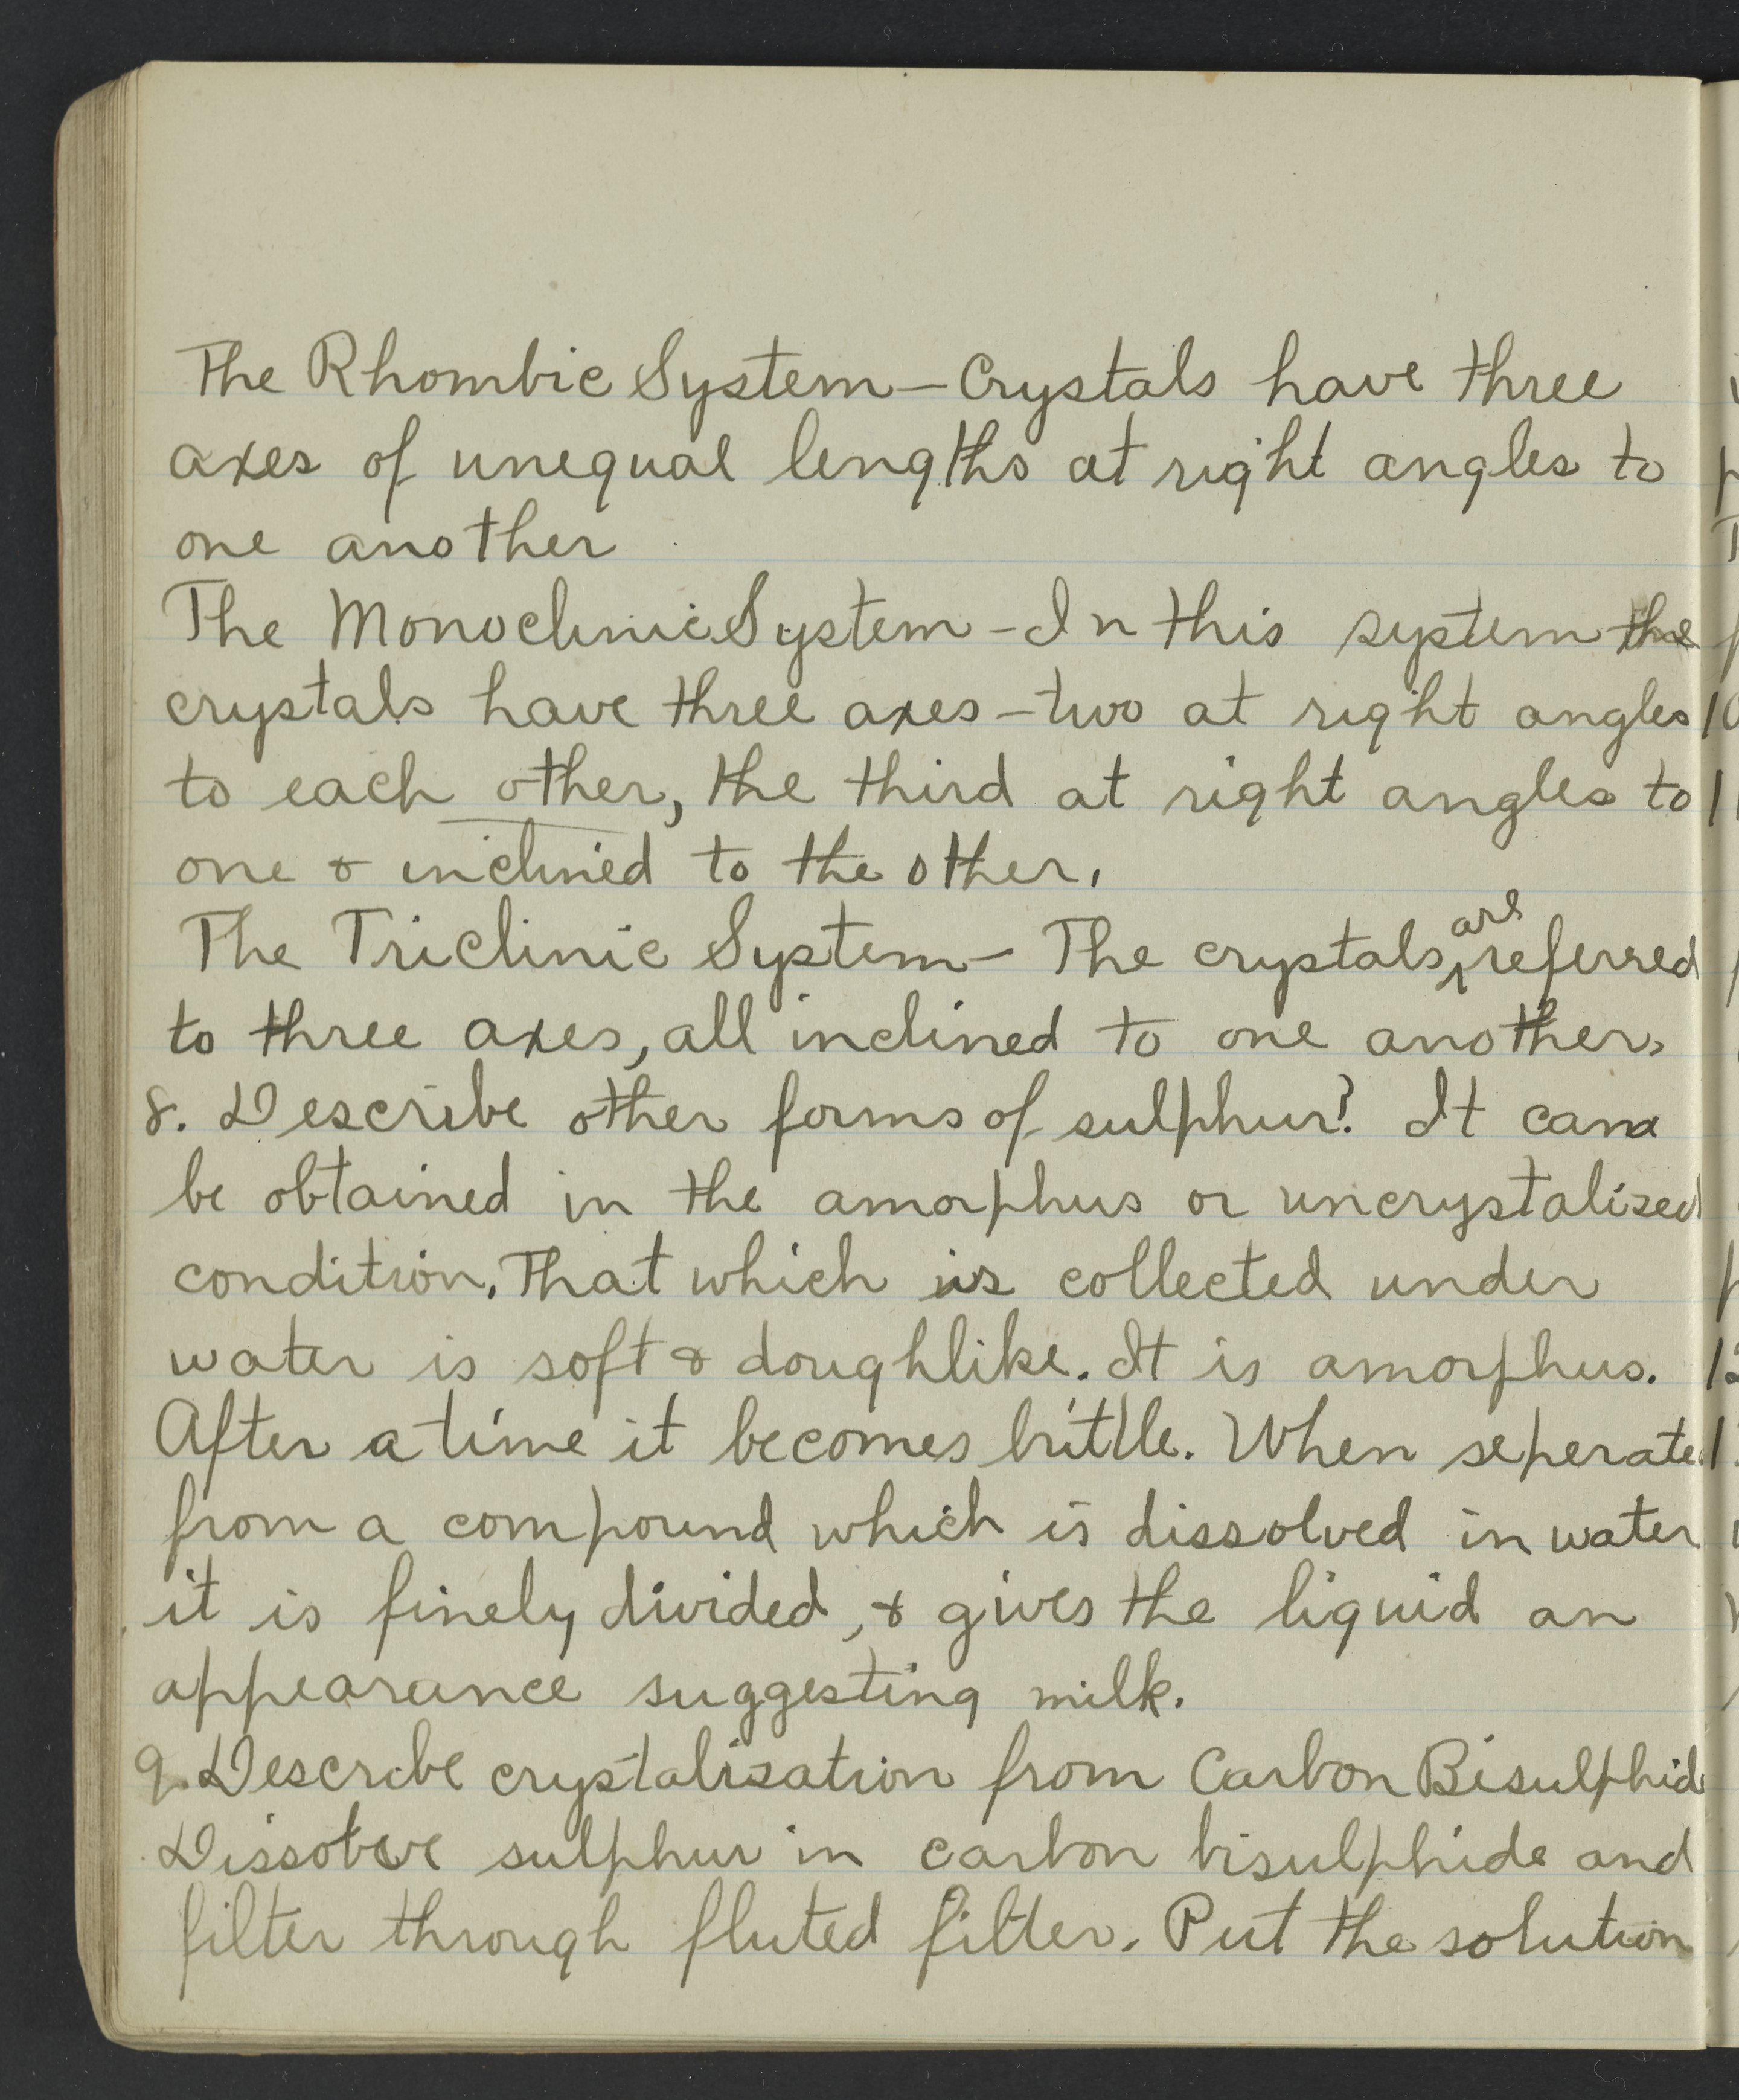 The Rhombic System — Crystals have three
axes of unequal lengths at right angles to
one another
The Monoclinic System - In this system the
crystals have three axes - two at right angles
to each other, the third at right angles to
one & inclined to the other.
The Triclinic System - The crystals are referred
to three axes, all inclined to one another.
8. Describe other forms of sulphur? It can
be obtained in the amorphus or uncrystalized
condition. That which is collected under
water is soft & doughlike. It is amorphus.
After a time it becomes brittle. When seperated
from a compound which is dissolved in water
it is finely divided, & gives the liquid an
appearance suggesting milk.
9. Describe crystalization from Carbon Bisulphide
Dissolve sulphur in carbon bisulphide and
filter through fluted filter. Put the solution